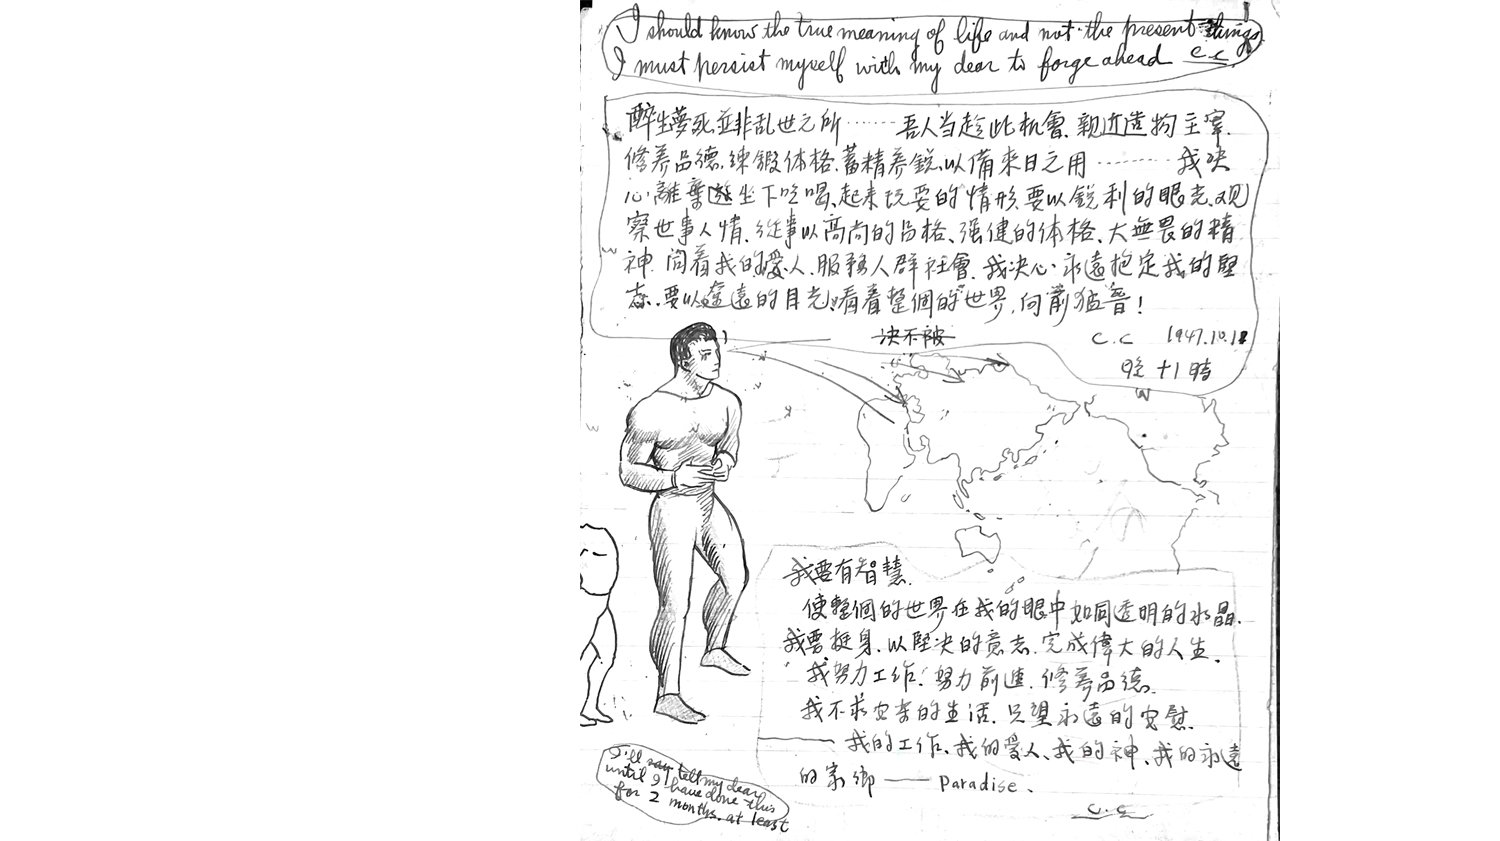 I should know the true meaning of life and not the present things.
I must persist myself with my dear to forge ahead C.C
醉生夢死並非乱世之所⋯⋯吾人当趁此机會、親近造物主宰.
修养品德、鍊鍛体格、蓄精养銳、以備來日之用⋯⋯我决
心離棄坐下吃喝、起来玩耍的情形、要以銳利的眼光、观
察世事人情、從事以高尚的品格、强健的体格、大無畏的精
神、同着我的爱人、服務人群社會、我决心永遠抱定我的堅
志、要以遠的目光看着整個的世界、向前猛晉！
决不被
C.C 1947.10.12
晚十1時
我要有智慧.
使整個的世界在我的眼中如同透明的水晶.
我要挺身、以堅决的意志、完成偉大的人生.
我努力工作、努力前進、修养品德.
我不求安享的生活、只望永遠的安慰.
——我的工作、我的爱人、我的神、我的永遠
的家鄉——Paradise.
C.C
I'll say tell my dear
until I have done this
for 2 months. at least